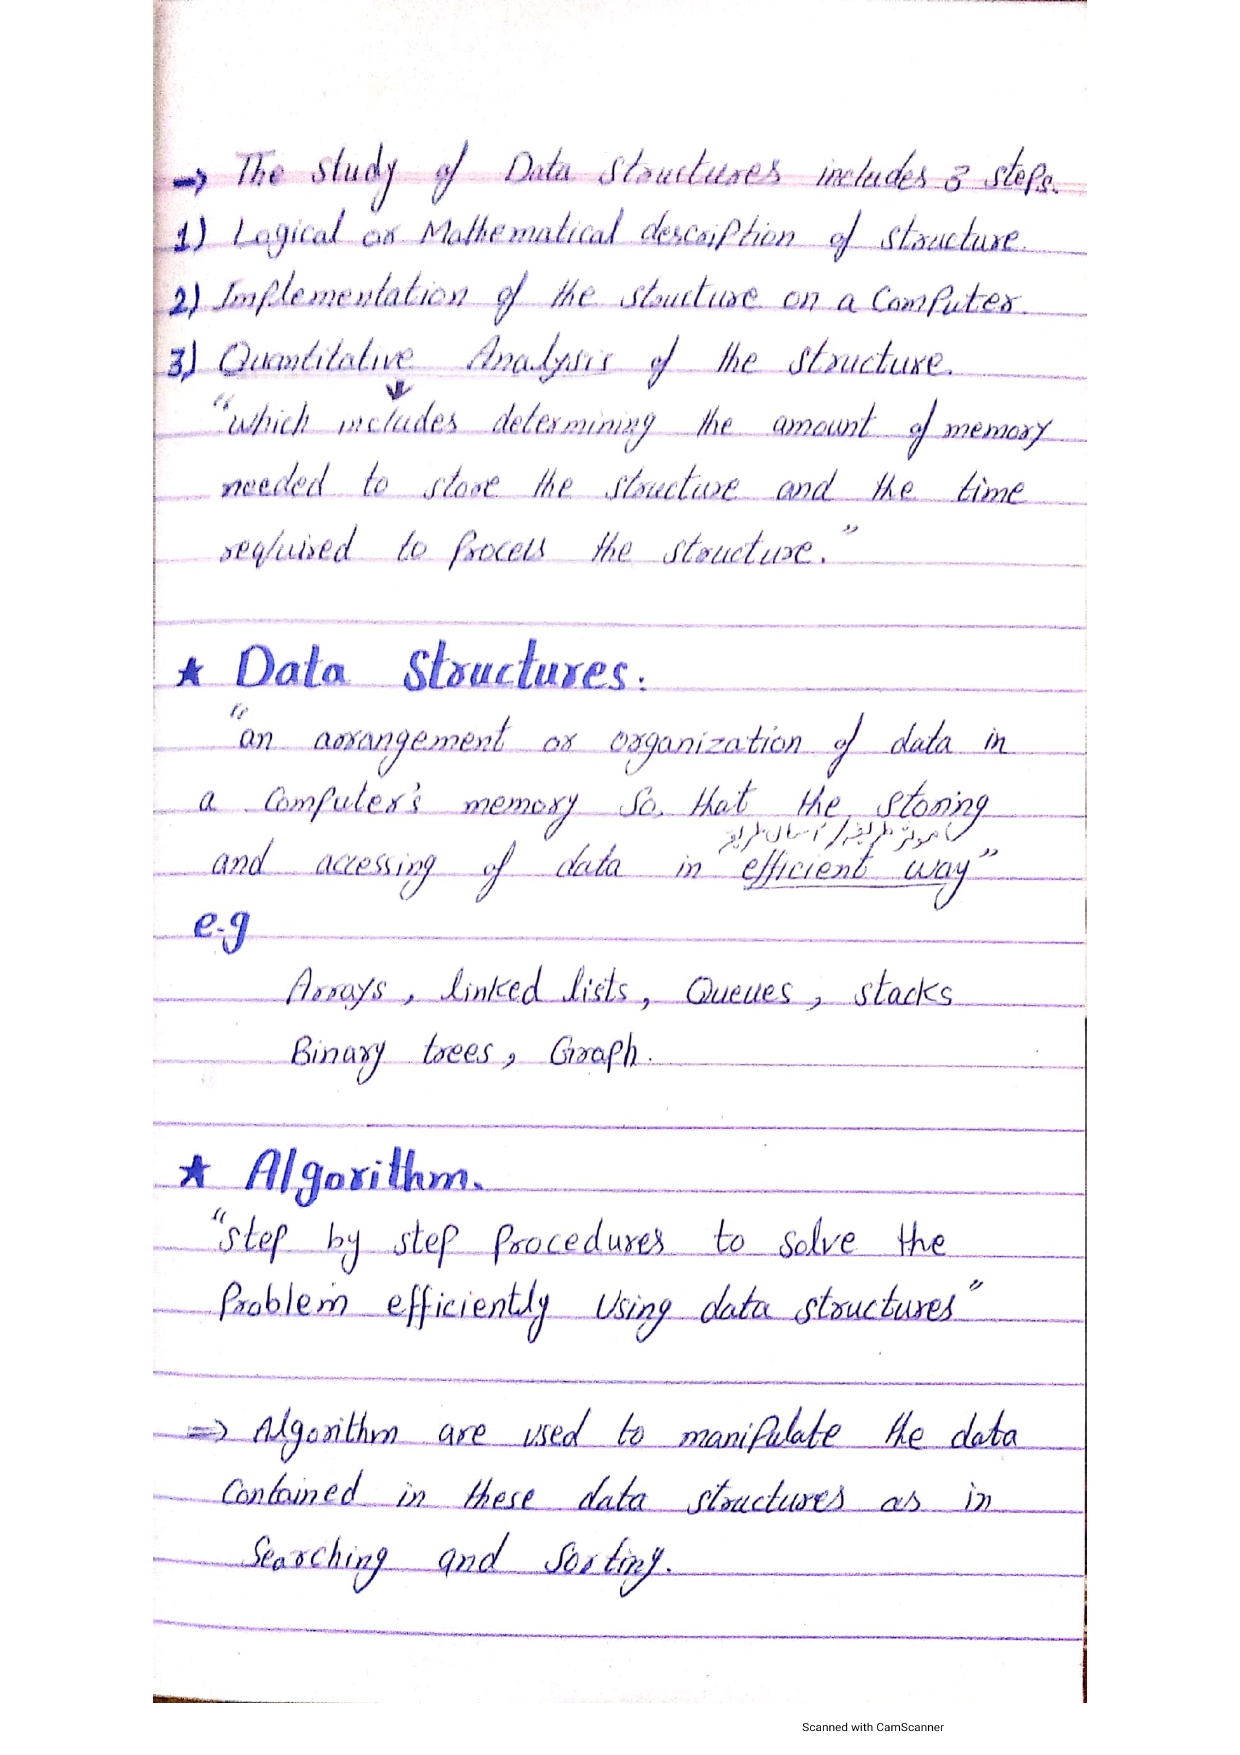 → The study of Data structures includes 3 steps.
1) Logical or Mathematical description of structure.
2) Implementation of the structure on a Computer.
3) Quantitative Analysis of the structure.
↓
"which includes determining the amount of memory
needed to store the structure and the time
required to process the structure."
★ Data Structures.
"an arrangement or organization of data in
a Computer's memory so, that the storing
and accessing of data in efficient way"
e.g
Arrays, linked lists, Queues, stacks
Binary trees, Graph.
★ Algorithm.
"step by step Procedures to solve the
Problem efficiently Using data structures"
⇒ Algorithm are used to manipulate the data
Contained in these data structures as in
Searching and Sorting.
Scanned with CamScanner